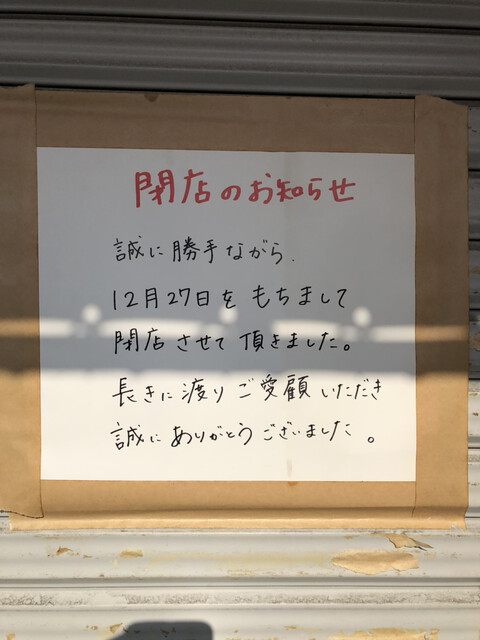 閉店のお知らせ
誠に勝手ながら.
12月27日をもちまして
閉店させて頂きました。
長きに渡りご愛顧いただき
誠にありがとうございました。